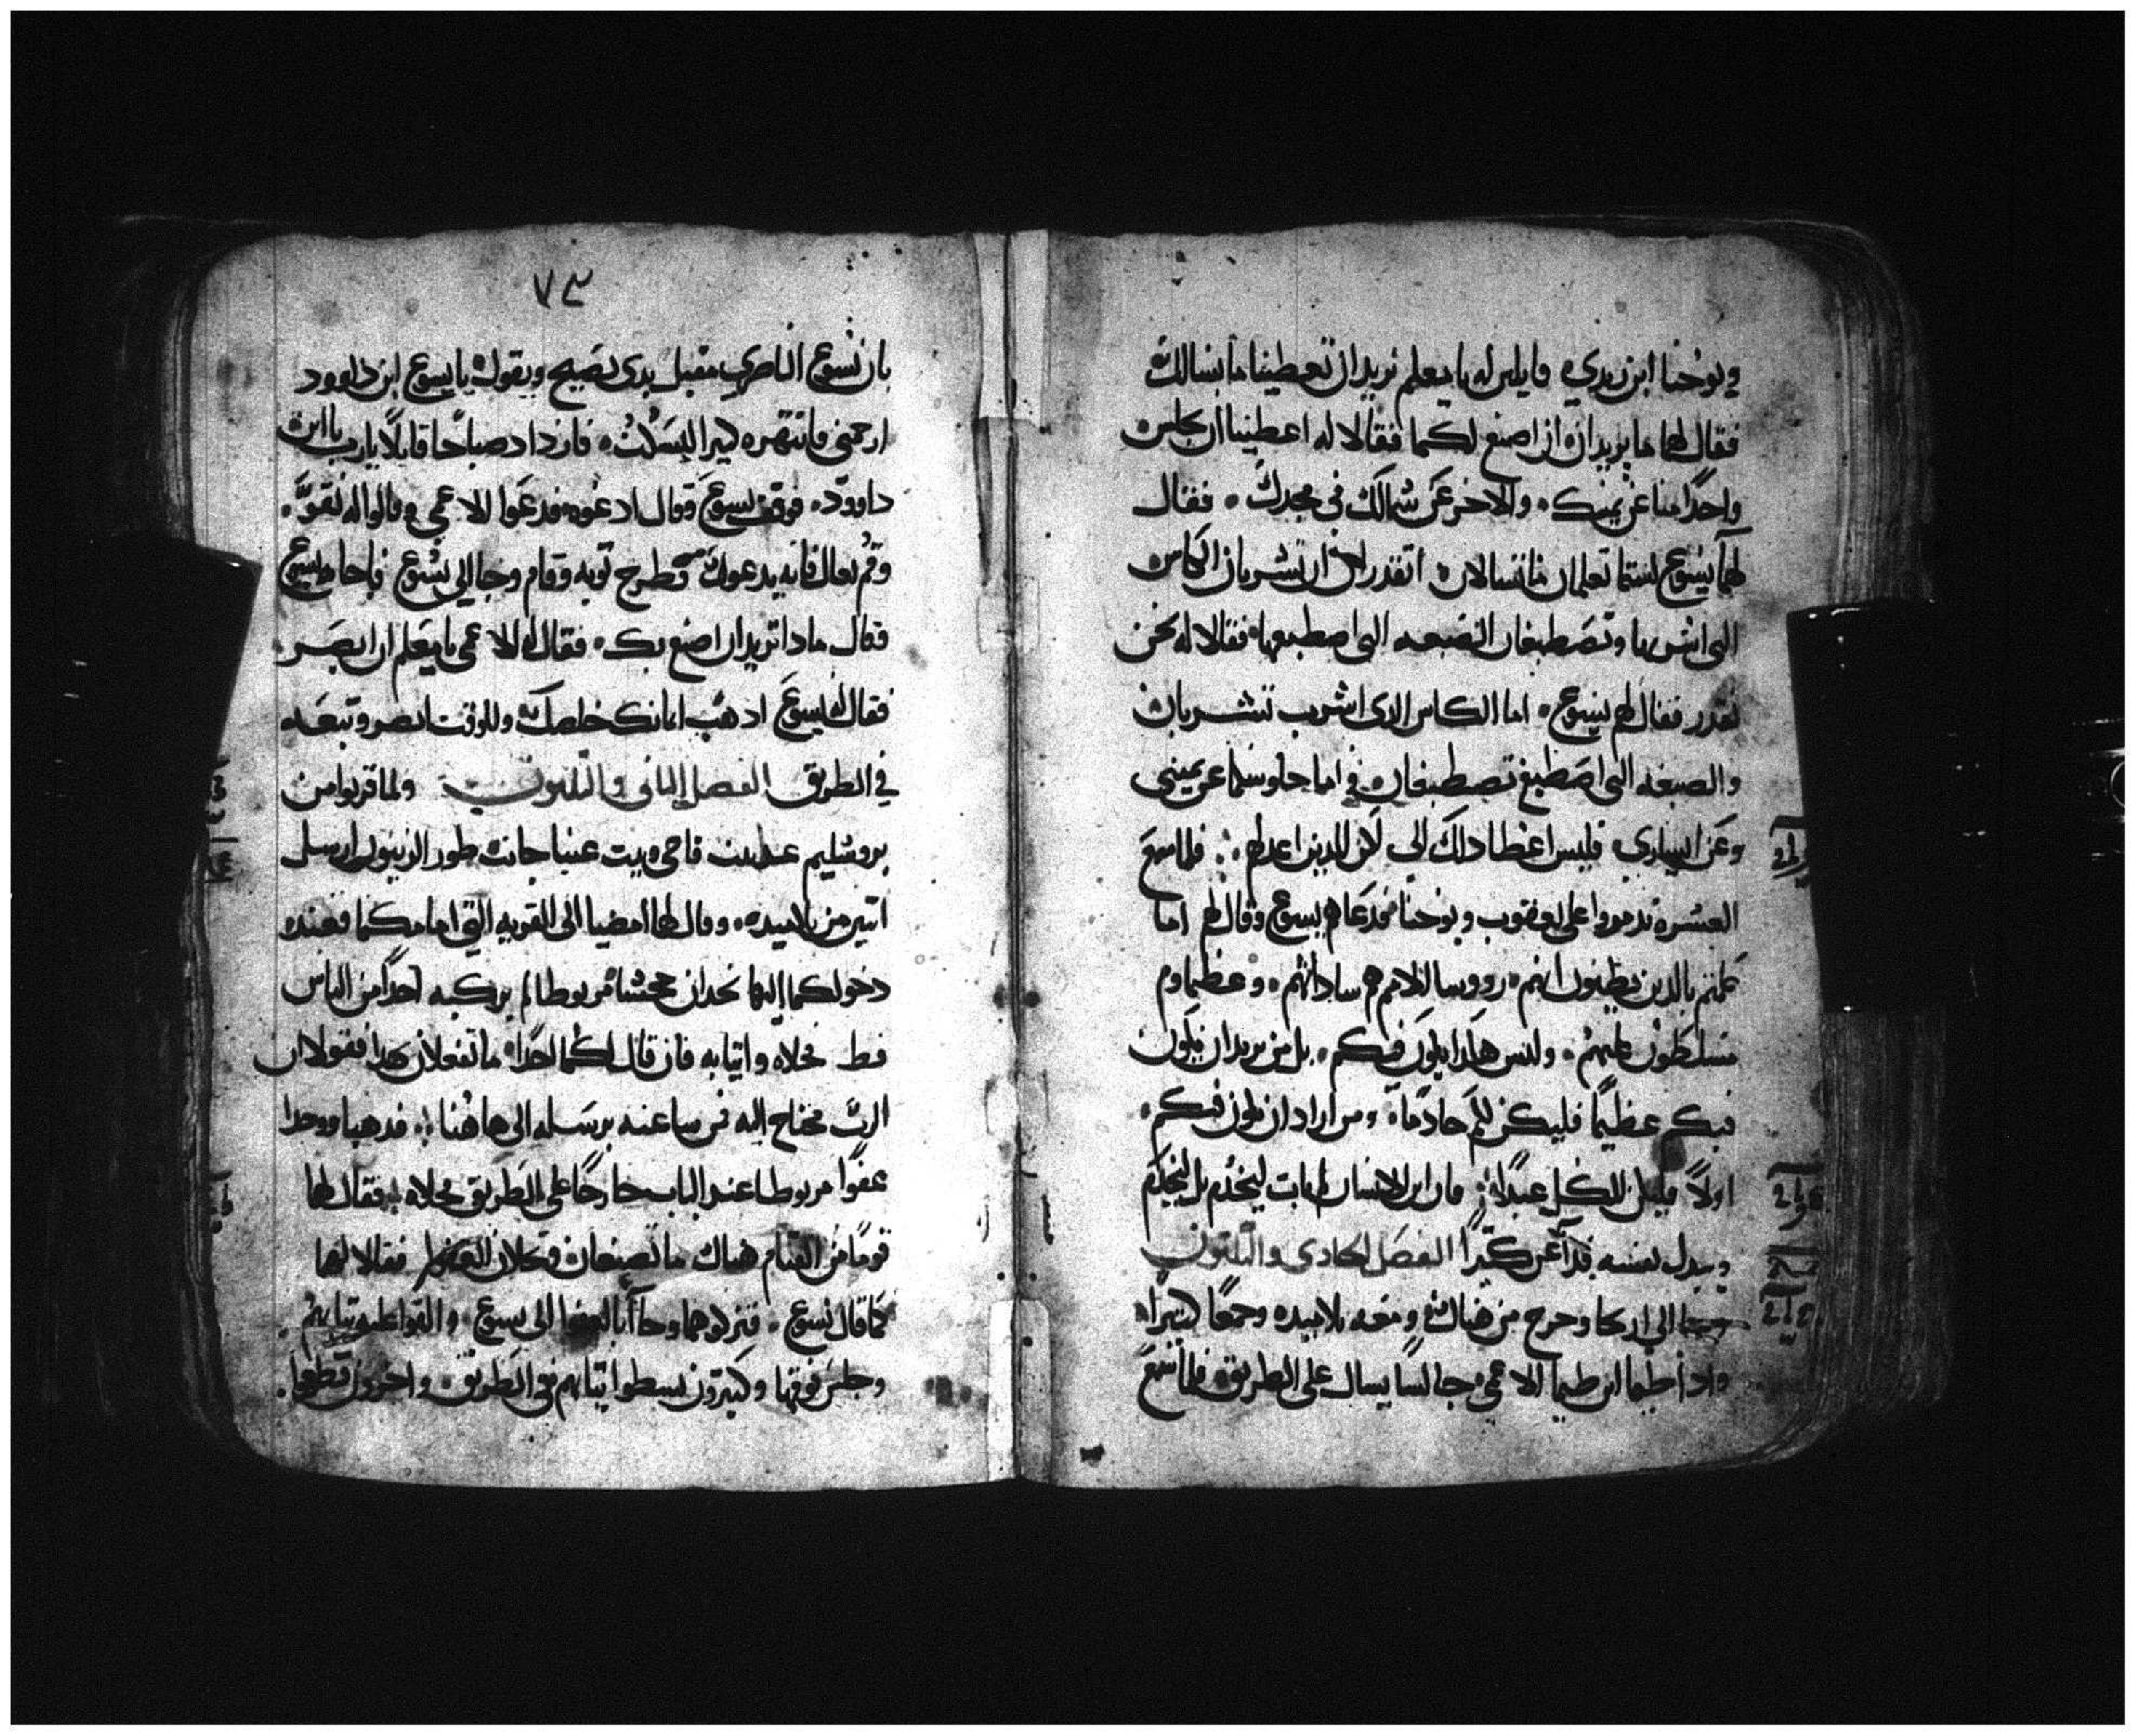 ويوحنا ابن زبدي قايلين له يا معلم نريد ان تعطينا ما نسالك
فقال لهما ما تريدان ان اصنع لكما فقالا له اعطينا ان يجلس
واحدًا منا عن يمينك والاخر عن شمالك في مجدك فقال
لهما يسوع لستما تعلمان ما تسالان اتقدران ان تشربان الكاس
التي اشربها وتصطبغان الصبغه التي اصطبغها فقالا له نحن
نقدر فقال لهم يسوع اما الكاس الذي اشرب تشربان
والصبغه التي اصطبغ تصطبغان فاما جلوسكما عن يميني
وعن يساري فليس اعطا ذلك لي لكن للذين اعد لهم فلما سمع
العشره تذمروا على يعقوب ويوحنا فدعاهم يسوع وقال لهم اما
علمتم بالذين يظنون انهم رووسا للامم هم ساداتهم وعظماوهم
متسلطون عليهم وليس هكذا يكون فيكم بل من يريد ان يكون
فيكم عظيمًا فليكن لكم خادمًا ومن اراد ان يكون فيكم
اولاً فليكن للكل عبدًا فان ابن الانسان لم يات ليخدم بل ليخدم
ويبذل نفسه فدا عن كثيرًا الفصل الحادي والثلثون
الى اريحا وخرج من هناك ومعه تلاميذه وجمعًا كثيرًا
واذا طيما ابن طيما الاعمى جالسًا يسال على الطريق فلما سمع
٧٣
بان يسوع الناصري مقبل بدى يصيح ويقول يا يسوع ابن داوود
ارحمني فانتهره كثيرًا ليسكت فازداد صياحًا قايلاً يا رب يا ابن
داوود فوقف يسوع وقال ادعوه فدعوا الاعمى وقالوا له تقوَّ
وقم تعال فانه يدعوك فطرح ثوبه وقام وجا الى يسوع فاجابه يسوع
فقال ماذا تريد ان اصنع بك فقال له الاعمى يا معلم ان ابصر
فقال له يسوع اذهب ايمانك خلصك وللوقت ابصر وتبعه
في الطريق الفصل الثاني والثلثون ولما قربوا من
يروشليم عند بيت فاجي وبيت عنيا جانب طور الزيتون ارسل
اثنين من تلاميذه وقال لهما امضيا الى القريه التي امامكما فعند
دخولكما اليها تجدان جحشًا مربوطا لم يركبه احدًا من الناس
قط فحلاه واتيا به فان قال لكما احدًا ما تفعلان هذا فقولا ان
الرب محتاج اليه فمن ساعته يرسله الى هاهنا فذهبا ووجدا
عفوًا مربوطا عند الباب خارجًا على الطريق فحلاه فقال لهما
قومًا من القيام هناك ما تصنعان وتحلان العفو فقالا لهما
كما قال يسوع فتركوهما وجاا بالعفوا الى يسوع والقوا عليه ثيابهم
وجلس فوقها وكثيرون بسطوا ثيابهم في الطريق واخرون قطعوا